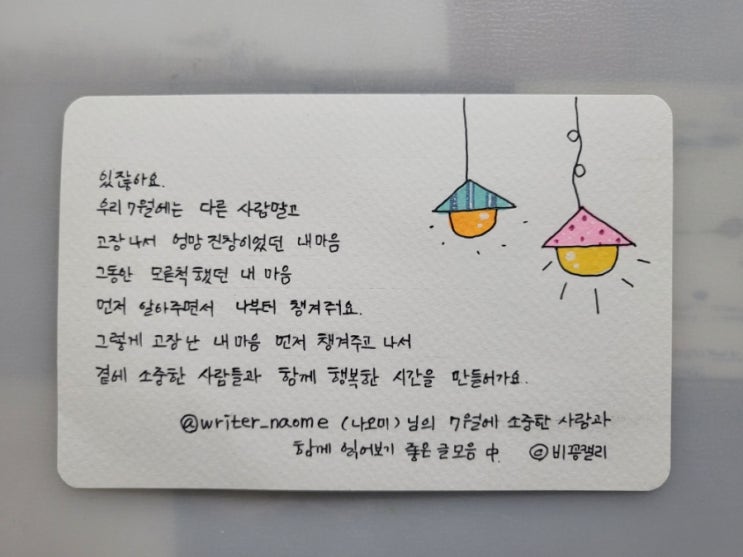 있잖아요.
우리 7월에는 다른 사람말고
고장나서 엉망진창이었던 내마음
그동안 모른척했던 내 마음
먼저 알아주면서 나부터 챙겨줘요.
그렇게 고장난 내마음 먼저 챙겨주고 나서
곁에 소중한 사람들과 함께 행복한 시간을 만들어가요.
@writer_naome (나오미)님의 7월에 소중한 사람과
함께 읽어보기 좋은글모음 中. ⓒ비꽁캘리